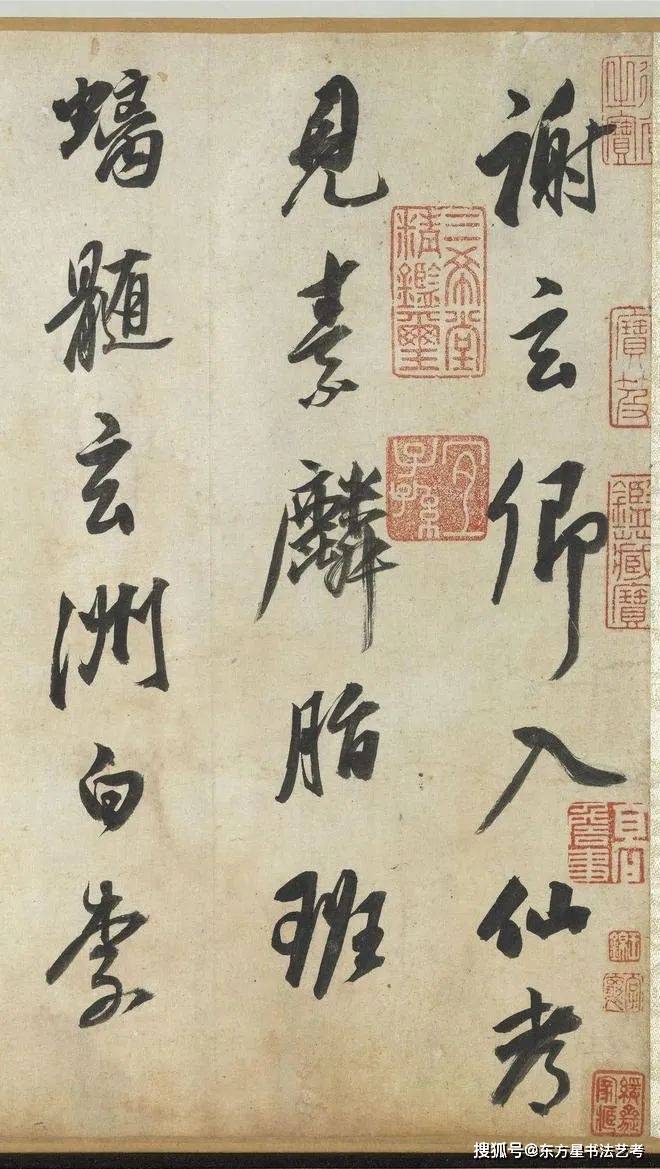 謝玄卿入仙考
見素麟脂班
螭髓玄洲白柰
三希堂
精鑑璽
宜
子孫
搜狐号@东方星书法艺考